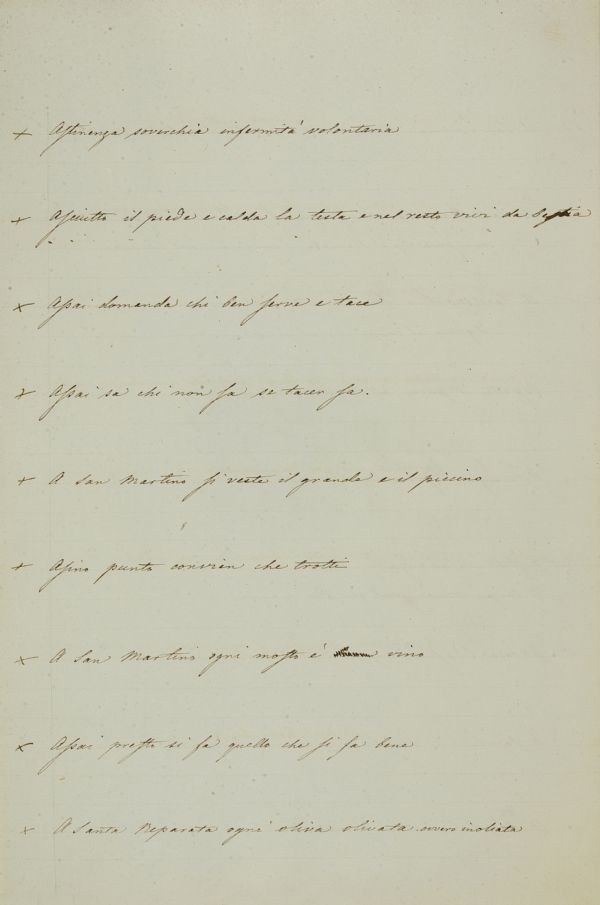 × Astinenza soverchia infermità volontaria
× Asciutto il piede e calda la testa e nel resto vivi da bestia
× Assai domanda chi ben serve e tace
× Assai sa chi non sa se tacer sa.
× A San Martino si veste il grande e il piccino
× Asino punto convien che trotti
× A San Martino ogni mosto è vino
× Assai presto si fa quello che si fa bene
× A Santa Reparata ogni oliva olivata ovvero inoliata